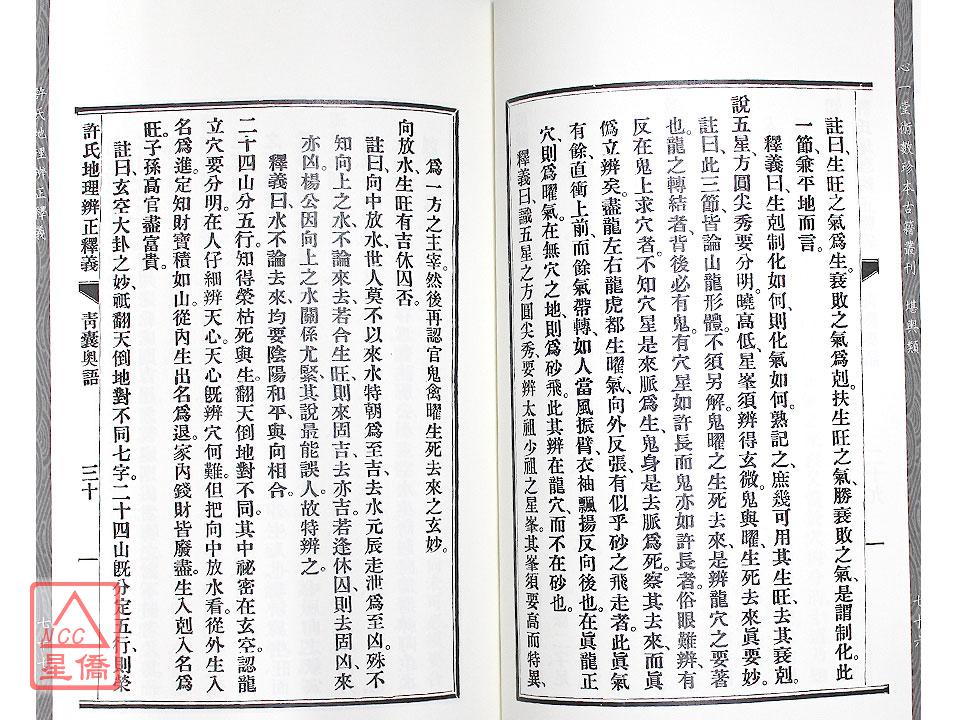 心一堂術數珍本古籍叢刊 堪輿類
註曰、生旺之氣爲生。衰敗之氣爲剋。扶生旺之氣、勝衰敗之氣、是謂制化。此
一節兼平地而言。
釋義曰、生剋制化如何、則化氣如何。熟記之、庶幾可用其生旺、去其衰剋。
說五星方圓尖秀要分明。曉高低星峯須辨得玄微。鬼與曜生死去來眞要妙。
註曰、此三節、皆論山龍形體。不須另解。鬼曜之生死去來、是辨龍穴之要著
也。龍之轉結者、背後必有鬼。有穴星如許長、而鬼亦如許長者。俗眼難辨、有
反在鬼上求穴者。不知穴星是來脈、爲生。鬼身是去脈、爲死。察其去來、而眞
僞立辨矣。盡龍左右龍虎都生曜氣、向外反張、有似乎砂之飛走者。此眞氣
有餘、直衝上前、而餘氣帶轉、如人當風振臂、衣袖飄揚反向後也。在眞龍正
穴、則爲曜氣。在無穴之地、則爲砂飛。此其辨在龍穴、而不在砂也。
釋義曰、識五星之方圓尖秀、要辨太祖少祖之星峯。其峯須要高而特異、
爲一方之主宰。然後再認官鬼禽曜生死去來之玄妙。
向放水。生旺有吉休囚否。
註曰、向中放水、世人莫不以來水特朝爲至吉。去水元辰走泄爲至凶。殊不
知向上之水、不論來去、若合生旺、則來固吉、去亦吉。若逢休囚、則去固凶、來
亦凶。楊公因向上之水關係尤緊、其說最能誤人、故特辨之。
釋義曰、水不論去來、均要陰陽和平、與向相合。
二十四山分五行。知得榮枯死與生。翻天倒地對不同。其中祕密在玄空。認龍
立穴要分明。在人仔細辨天心。天心旣辨穴何難。但把向中放水看。從外生入
名爲進。定知財寶積如山。從內生出名爲退。家內錢財皆廢盡。生入剋入名爲
旺。子孫高官盡富貴。
註曰、玄空大卦之妙、祇翻天倒地對不同七字。二十四山旣分定五行、則榮
許氏地理辨正釋義 靑囊奧語 三十
許氏地理辨正釋義
NCC
星僑